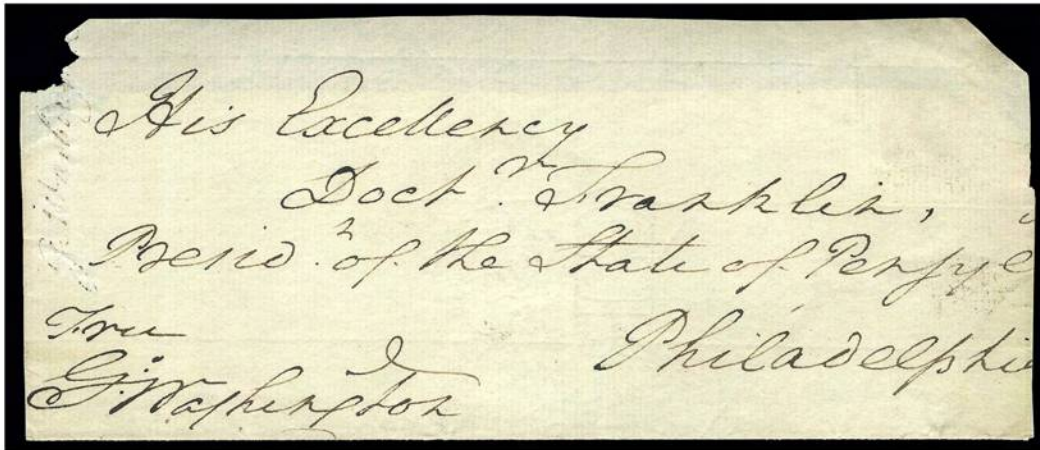 His Excellency
Doctr. Franklin,
Presidt. of the State of Pensyl
Free
Philadelphi
G:Washington